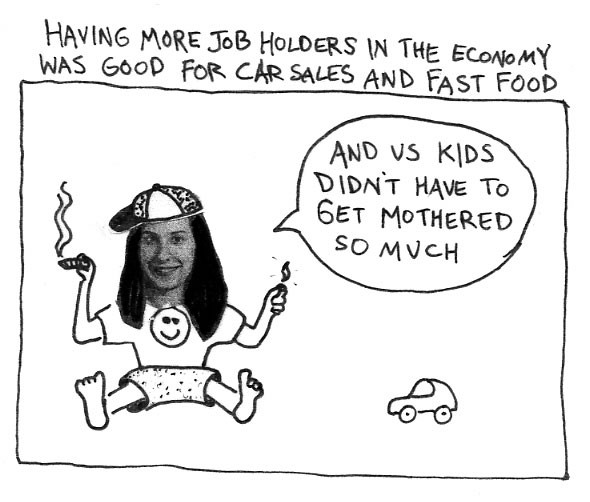 HAVING MORE JOB HOLDERS IN THE ECONOMY
WAS GOOD FOR CAR SALES AND FAST FOOD
AND US KIDS
DIDN'T HAVE TO
GET MOTHERED
SO MUCH